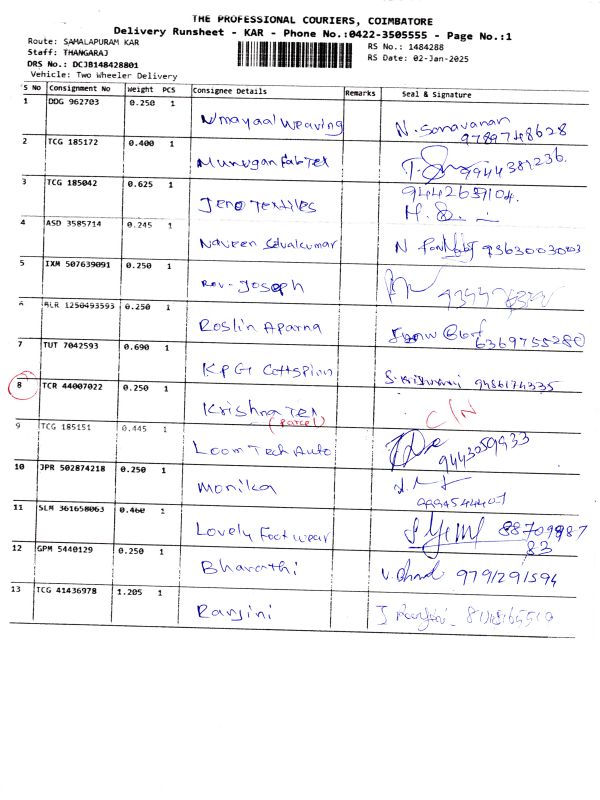 THE PROFESSIONAL COURIERS, COIMBATORE
Delivery Runsheet - KAR - Phone No.:0422-3505555 - Page No.:1
Route: SAMALAPURAM KAR
RS No.: 1484288
Staff: THANGARAJ
RS Date: 02-Jan-2025
DRS No.: DCJB148428801
Vehicle: Two Wheeler Delivery
S No Consignment No Weight PCS Consignee Details Remarks Seal & Signature
1 DDG 962703 0.250 1 Umayaal Weaving N. Saravanan
9789748628
2 TCG 185172 0.400 1 Murugan Fab Tex
3 TCG 185042 0.625 1 Jeno Textiles
4 ASD 3585714 0.245 1 Naveen Selvakumar N
5 IXM 507639091 0.250 1 Rev. Joseph
6 BLR 1250493593 0.250 1 Roslin Aparna
6369755280
7 TUT 7042593 0.690 1 KPG Cottspinn 9486174335
8 TCR 44007022 0.250 1 Krishna Tex C/N
(parcel)
9 TCG 185151 0.445 1 Loom Tech Auto
9443059933
10 JPR 502874218 0.250 1 Monika
11 SLM 361658063 0.460 1 Lovely Footwear 88709987
83
12 GPM 5440129 0.250 1 Bharathi 9791291594
13 TCG 41436978 1.205 1 Ranjini J Ranjini